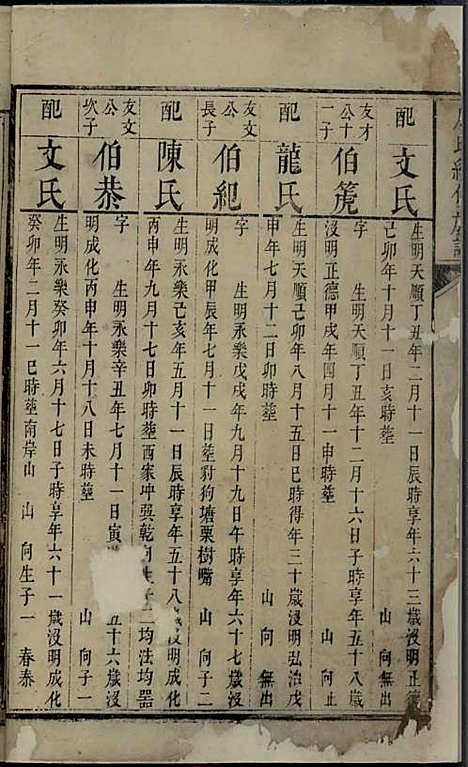 配
文氏
生明天順丁丑年二月十一日辰時享年六十三歲沒明正德
己卯年十月十一日亥時塟 山 向無出
友才公十一子
伯箎
字 生明天順丁丑年十二月十六日子時享年五十八歲
沒明正德甲戌年四月十一申時塟 山 向 止
配
龍氏
生明天順己卯年八月十五日巳時得年三十歲沒明弘治戊
申年七月十二日卯時塟 山 向 無出
友文公長子
伯紀
字 生明永樂戊戌年九月十九日午時享年六十七歲沒
明成化甲辰年七月十一日塟豺狗塘栗樹嘴 山 向子二
配
陳氏
生明永樂己亥年五月十一日辰時享年五十八 沒明成化
丙申年九月十七日卯時塟西家冲巽乾向 子二均法均器
友文公次子
伯恭
字 生明永樂辛丑年七月十一日寅 五十六歲沒
明成化丙申年十月十八日未時塟 山 向子一
配
文氏
生明永樂癸卯年六月十七日子時享年六十一歲沒明成化
癸卯年二月十一巳時塟南岸山 山 向生子一 春泰